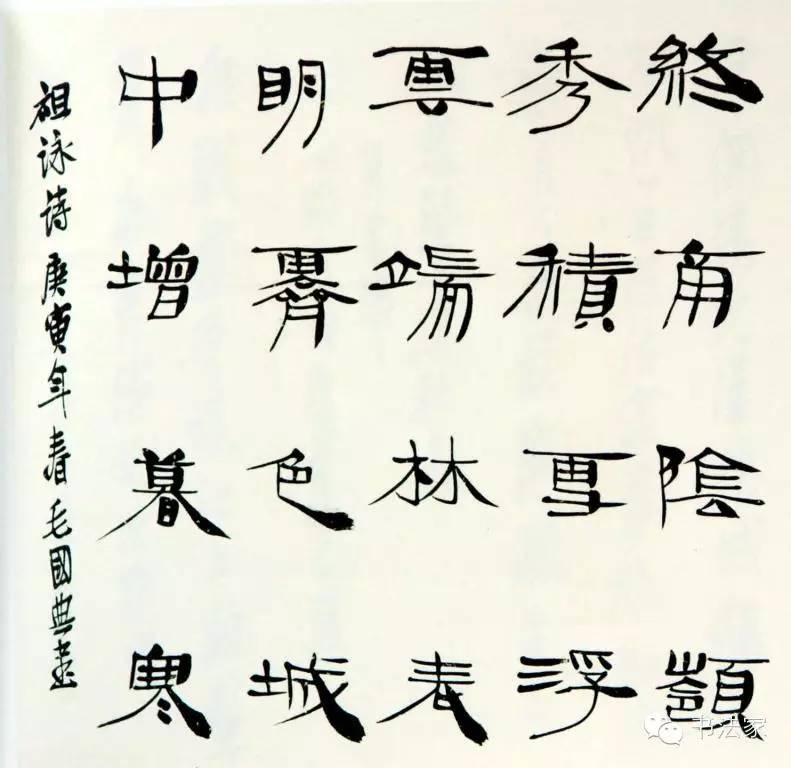 終南陰嶺
秀積雪浮
雲端林表
明霽色城
中增暮寒
祖詠詩庚寅年春毛國典書
书法家